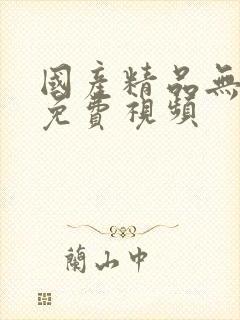 國產精品無
免費視頻
蘭山中